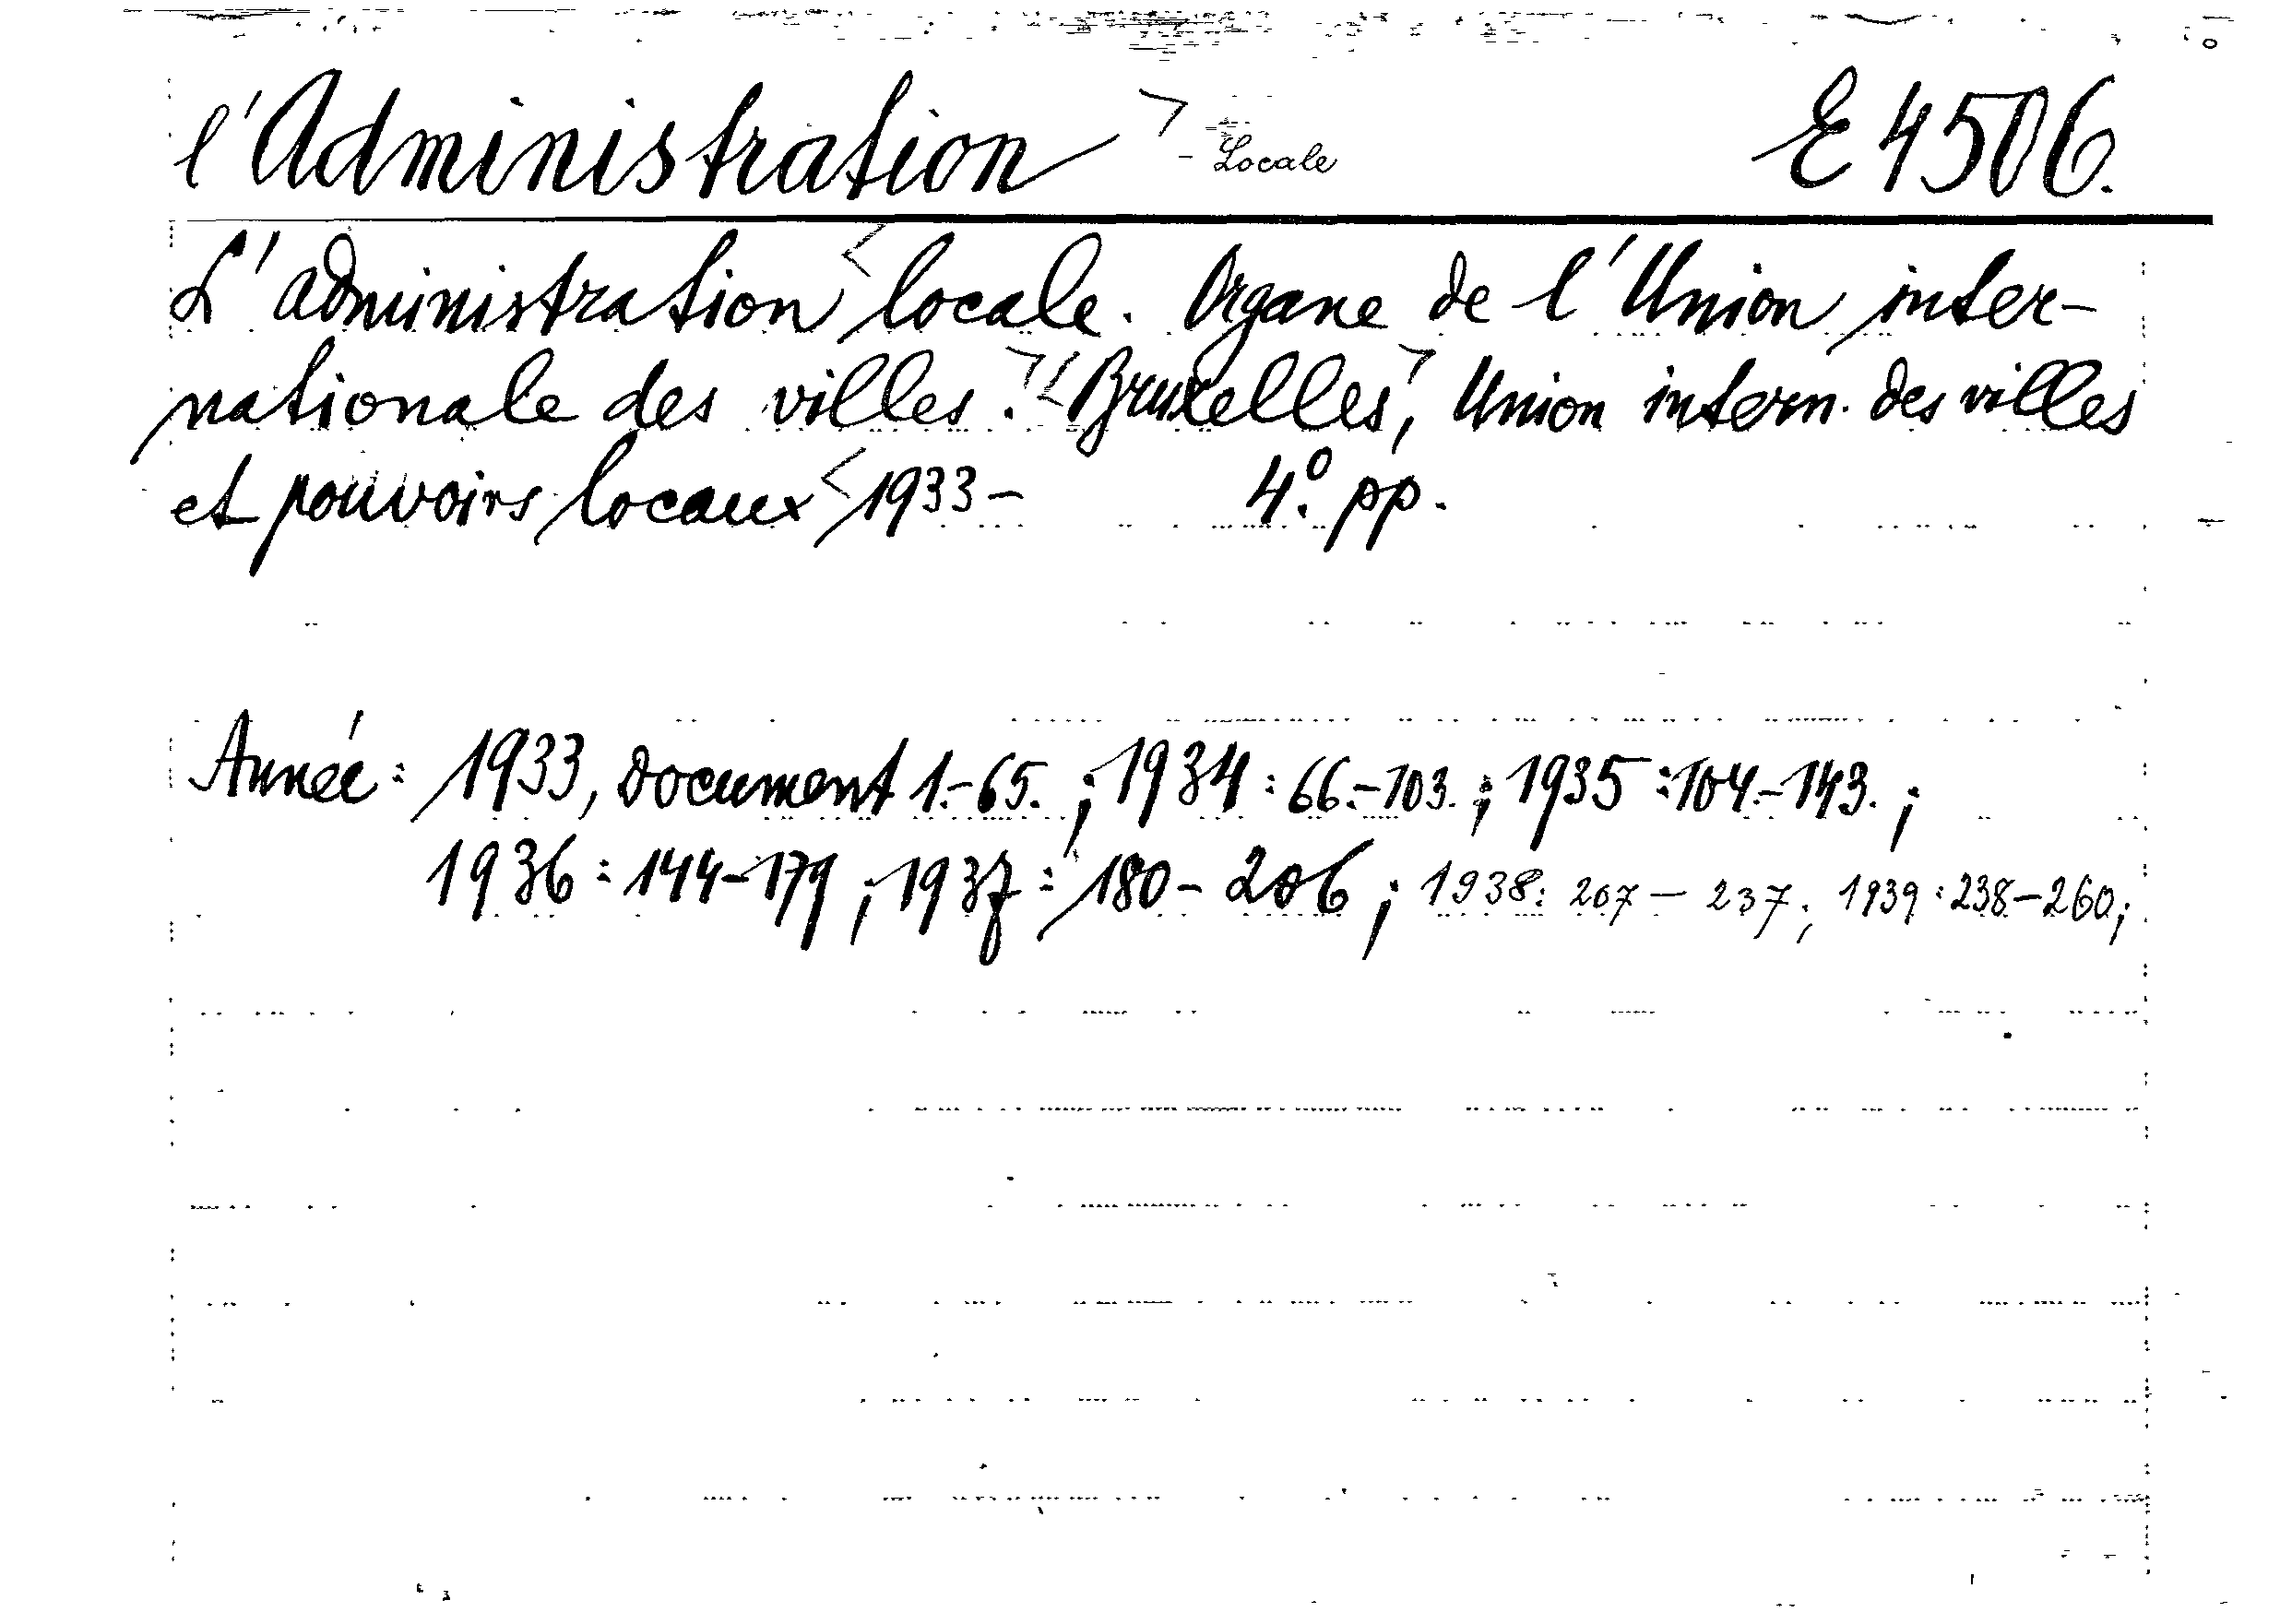 l'Administration - Locale E 4506.
L'administration locale. Organe de l'Union inter-
nationale des villes. - Bruxelles, Union intern. des villes
et pouvoirs locaux 1933- 4º. pp.
Année: 1933, Document 1.-65. ; 1934: 66.-103. ; 1935: 104.-143. ;
1936: 144-179 ; 1937: 180-206 ; 1938: 207-237; 1939: 238-260;